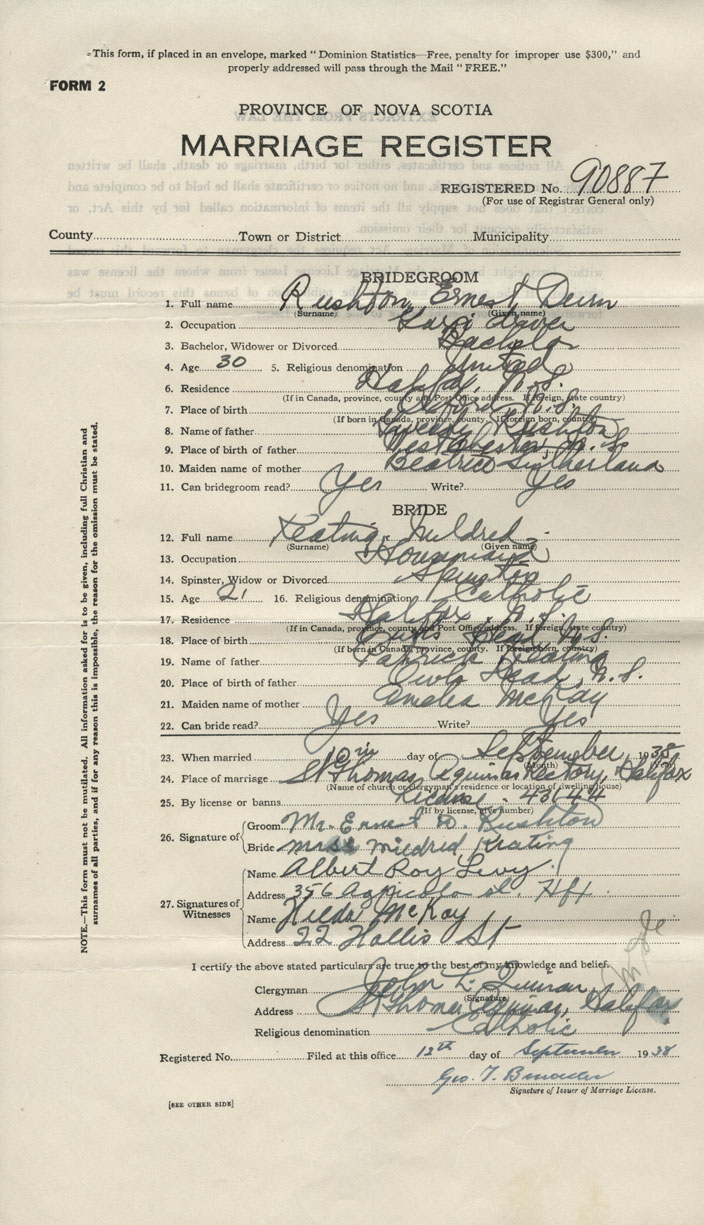 This form, if placed in an envelope, marked "Dominion Statistics—Free, penalty for improper use $300," and
properly addressed will pass through the Mail "FREE."
FORM 2
PROVINCE OF NOVA SCOTIA
MARRIAGE REGISTER
REGISTERED No. 90887
(For use of Registrar General only)
County Town or District Municipality
BRIDEGROOM
1. Full name Rushton, Ernest
(Surname) (Given name)
2. Occupation
3. Bachelor, Widower or Divorced Bachelor
4. Age 30 5. Religious denomination United
6. Residence Halifax, N.S.
(If in Canada, province, county and Post Office address. If foreign, state country)
7. Place of birth Oxford N.S.
(If born in Canada, province, county. If foreign born, country)
8. Name of father Rushton
9. Place of birth of father Westchester, N.S.
10. Maiden name of mother Beatrice Sutherland
11. Can bridegroom read? Yes Write? Yes
BRIDE
12. Full name Keating, Mildred
(Surname) (Given name)
13. Occupation Housemaid
14. Spinster, Widow or Divorced Spinster
15. Age 21 16. Religious denomination Catholic
17. Residence Halifax, N.S.
(If in Canada, province, county and Post Office address. If foreign, state country)
18. Place of birth Owls Head, N.S.
(If born in Canada, province, county. If foreign born, country)
19. Name of father Patrick Keating
20. Place of birth of father Owls Head, N.S.
21. Maiden name of mother Amelia McKay
22. Can bride read? Yes Write? Yes
23. When married 10th day of September 1938
(Month) (Year)
24. Place of marriage St Thomas Aquinas Rectory, Halifax
(Name of church or clergyman's residence or location of dwelling house)
25. By license or banns License. 43644
(If by license, give number)
26. Signature of
Groom Mr. Ernest D. Rushton
Bride Mildred Keating
27. Signatures of Witnesses
Name Albert Roy Levy
Address 356 Agricola St. Hfx.
Name Hilda McKay
Address 22 Hollis St
I certify the above stated particulars are true to the best of my knowledge and belief.
Clergyman John L. Quinan
(Signature)
Address St Thomas Aquinas, Halifax
Religious denomination Catholic
Registered No. Filed at this office 12th day of September 1938
Geo. T.
Signature of Issuer of Marriage License.
[SEE OTHER SIDE]
NOTE.—This form must not be mutilated. All information asked for is to be given, including full Christian and
surnames of all parties, and if for any reason this is impossible, the reason for the omission must be stated.